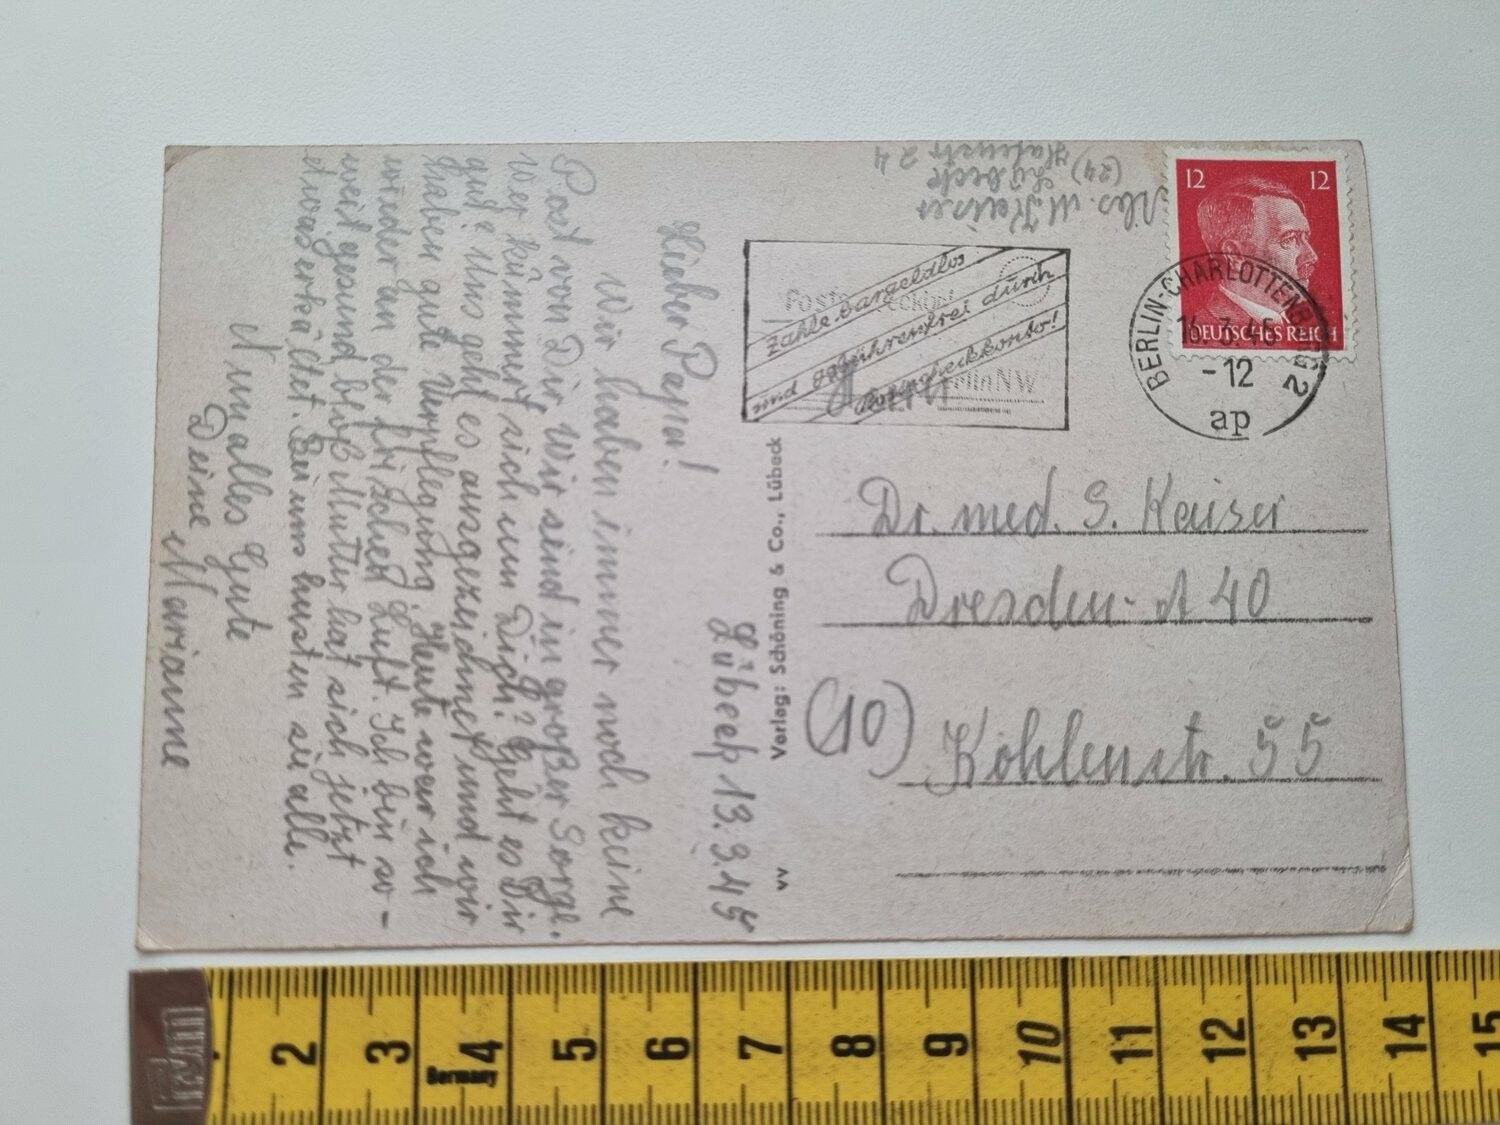 Lübeck 13.3.45
Lieber Papa!
Wir haben immer noch keine
Post von Dir. Wir sind in großer Sorge.
Wer kümmert sich um Dich? Geht es Dir
gut? Uns geht es ausgezeichnet und wir
haben gute Verpflegung. Heute war ich
wieder an der frischen Luft. Ich bin so-
weit gesund bloß Mutter hat sich jetzt
etwas erkältet. Bei uns husten sie alle.
Nun alles Gute
Deine Marianne
Verlag: Schöning & Co., Lübeck
vv
Abs. M. Kaiser
(24) Lübeck
Hafenstr 24
12 12
DEUTSCHES REICH
BERLIN-CHARLOTTENBURG 2
16.3.45
-12
ap
Zahle bargeldlos
und gebührenfrei durch
Postscheckkonto!
Berlin NW
Herrn
Dr. med. S. Kaiser
Dresden-A 40
(10) Kohlenstr. 55
2 3 4 5 6 7 8 9 10 11 12 13 14 15
Germany